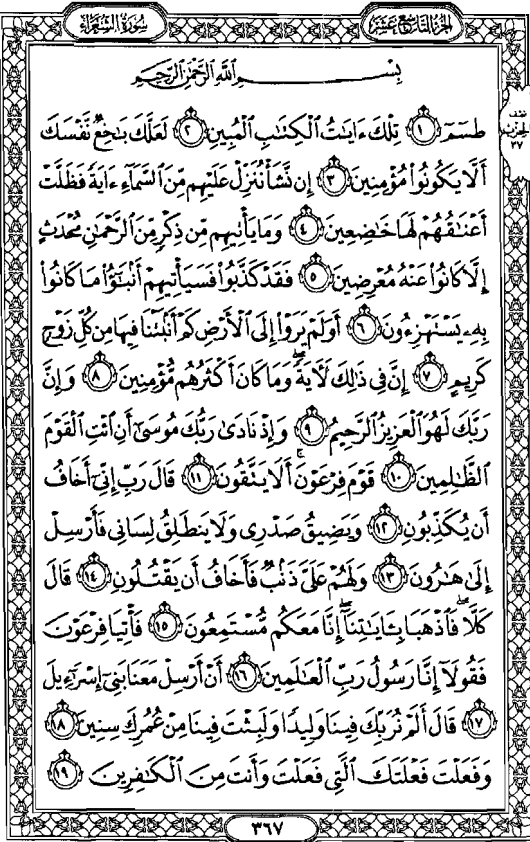 سُورَةُ الشُّعَرَاءِ
الجُزْءُ التَّاسِعَ عَشَرَ
بِسْمِ اللَّهِ الرَّحْمَٰنِ الرَّحِيمِ
نصف
الحزب
٣٧
طسٓمٓ ﴿١﴾ تِلْكَ ءَايَٰتُ الْكِتَٰبِ الْمُبِينِ ﴿٢﴾ لَعَلَّكَ بَٰخِعٌ نَّفْسَكَ
أَلَّا يَكُونُوا۟ مُؤْمِنِينَ ﴿٣﴾ إِن نَّشَأْ نُنَزِّلْ عَلَيْهِم مِّنَ السَّمَآءِ ءَايَةً فَظَلَّتْ
أَعْنَٰقُهُمْ لَهَا خَٰضِعِينَ ﴿٤﴾ وَمَا يَأْتِيهِم مِّن ذِكْرٍ مِّنَ الرَّحْمَٰنِ مُحْدَثٍ
إِلَّا كَانُوا۟ عَنْهُ مُعْرِضِينَ ﴿٥﴾ فَقَدْ كَذَّبُوا۟ فَسَيَأْتِيهِمْ أَنۢبَٰٓؤُا۟ مَا كَانُوا۟
بِهِۦ يَسْتَهْزِءُونَ ﴿٦﴾ أَوَلَمْ يَرَوْا۟ إِلَى الْأَرْضِ كَمْ أَنۢبَتْنَا فِيهَا مِن كُلِّ زَوْجٍ
كَرِيمٍ ﴿٧﴾ إِنَّ فِى ذَٰلِكَ لَءَايَةً ۖ وَمَا كَانَ أَكْثَرُهُم مُّؤْمِنِينَ ﴿٨﴾ وَإِنَّ
رَبَّكَ لَهُوَ الْعَزِيزُ الرَّحِيمُ ﴿٩﴾ وَإِذْ نَادَىٰ رَبُّكَ مُوسَىٰٓ أَنِ ائْتِ الْقَوْمَ
الظَّٰلِمِينَ ﴿١٠﴾ قَوْمَ فِرْعَوْنَ ۚ أَلَا يَتَّقُونَ ﴿١١﴾ قَالَ رَبِّ إِنِّىٓ أَخَافُ
أَن يُكَذِّبُونِ ﴿١٢﴾ وَيَضِيقُ صَدْرِى وَلَا يَنطَلِقُ لِسَانِى فَأَرْسِلْ
إِلَىٰ هَٰرُونَ ﴿١٣﴾ وَلَهُمْ عَلَىَّ ذَنۢبٌ فَأَخَافُ أَن يَقْتُلُونِ ﴿١٤﴾ قَالَ
كَلَّا ۖ فَاذْهَبَا بِـَٔايَٰتِنَآ ۖ إِنَّا مَعَكُم مُّسْتَمِعُونَ ﴿١٥﴾ فَأْتِيَا فِرْعَوْنَ
فَقُولَآ إِنَّا رَسُولُ رَبِّ الْعَٰلَمِينَ ﴿١٦﴾ أَنْ أَرْسِلْ مَعَنَا بَنِىٓ إِسْرَٰٓءِيلَ
﴿١٧﴾ قَالَ أَلَمْ نُرَبِّكَ فِينَا وَلِيدًا وَلَبِثْتَ فِينَا مِنْ عُمُرِكَ سِنِينَ ﴿١٨﴾
وَفَعَلْتَ فَعْلَتَكَ الَّتِى فَعَلْتَ وَأَنتَ مِنَ الْكَٰفِرِينَ ﴿١٩﴾
٣٦٧